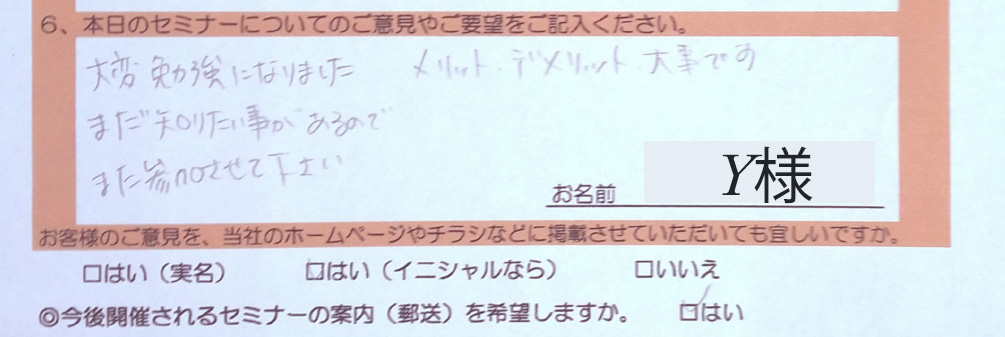 6、本日のセミナーについてのご意見やご要望をご記入ください。
大変 勉強になりました メリット・デメリット 大事です
まだ知りたい事があるので
また参加させて下さい
お名前 Y様
お客様のご意見を、当社のホームページやチラシなどに掲載させていただいても宜しいですか。
□はい（実名） □はい（イニシャルなら） □いいえ
◎今後開催されるセミナーの案内（郵送）を希望しますか。 ☑はい